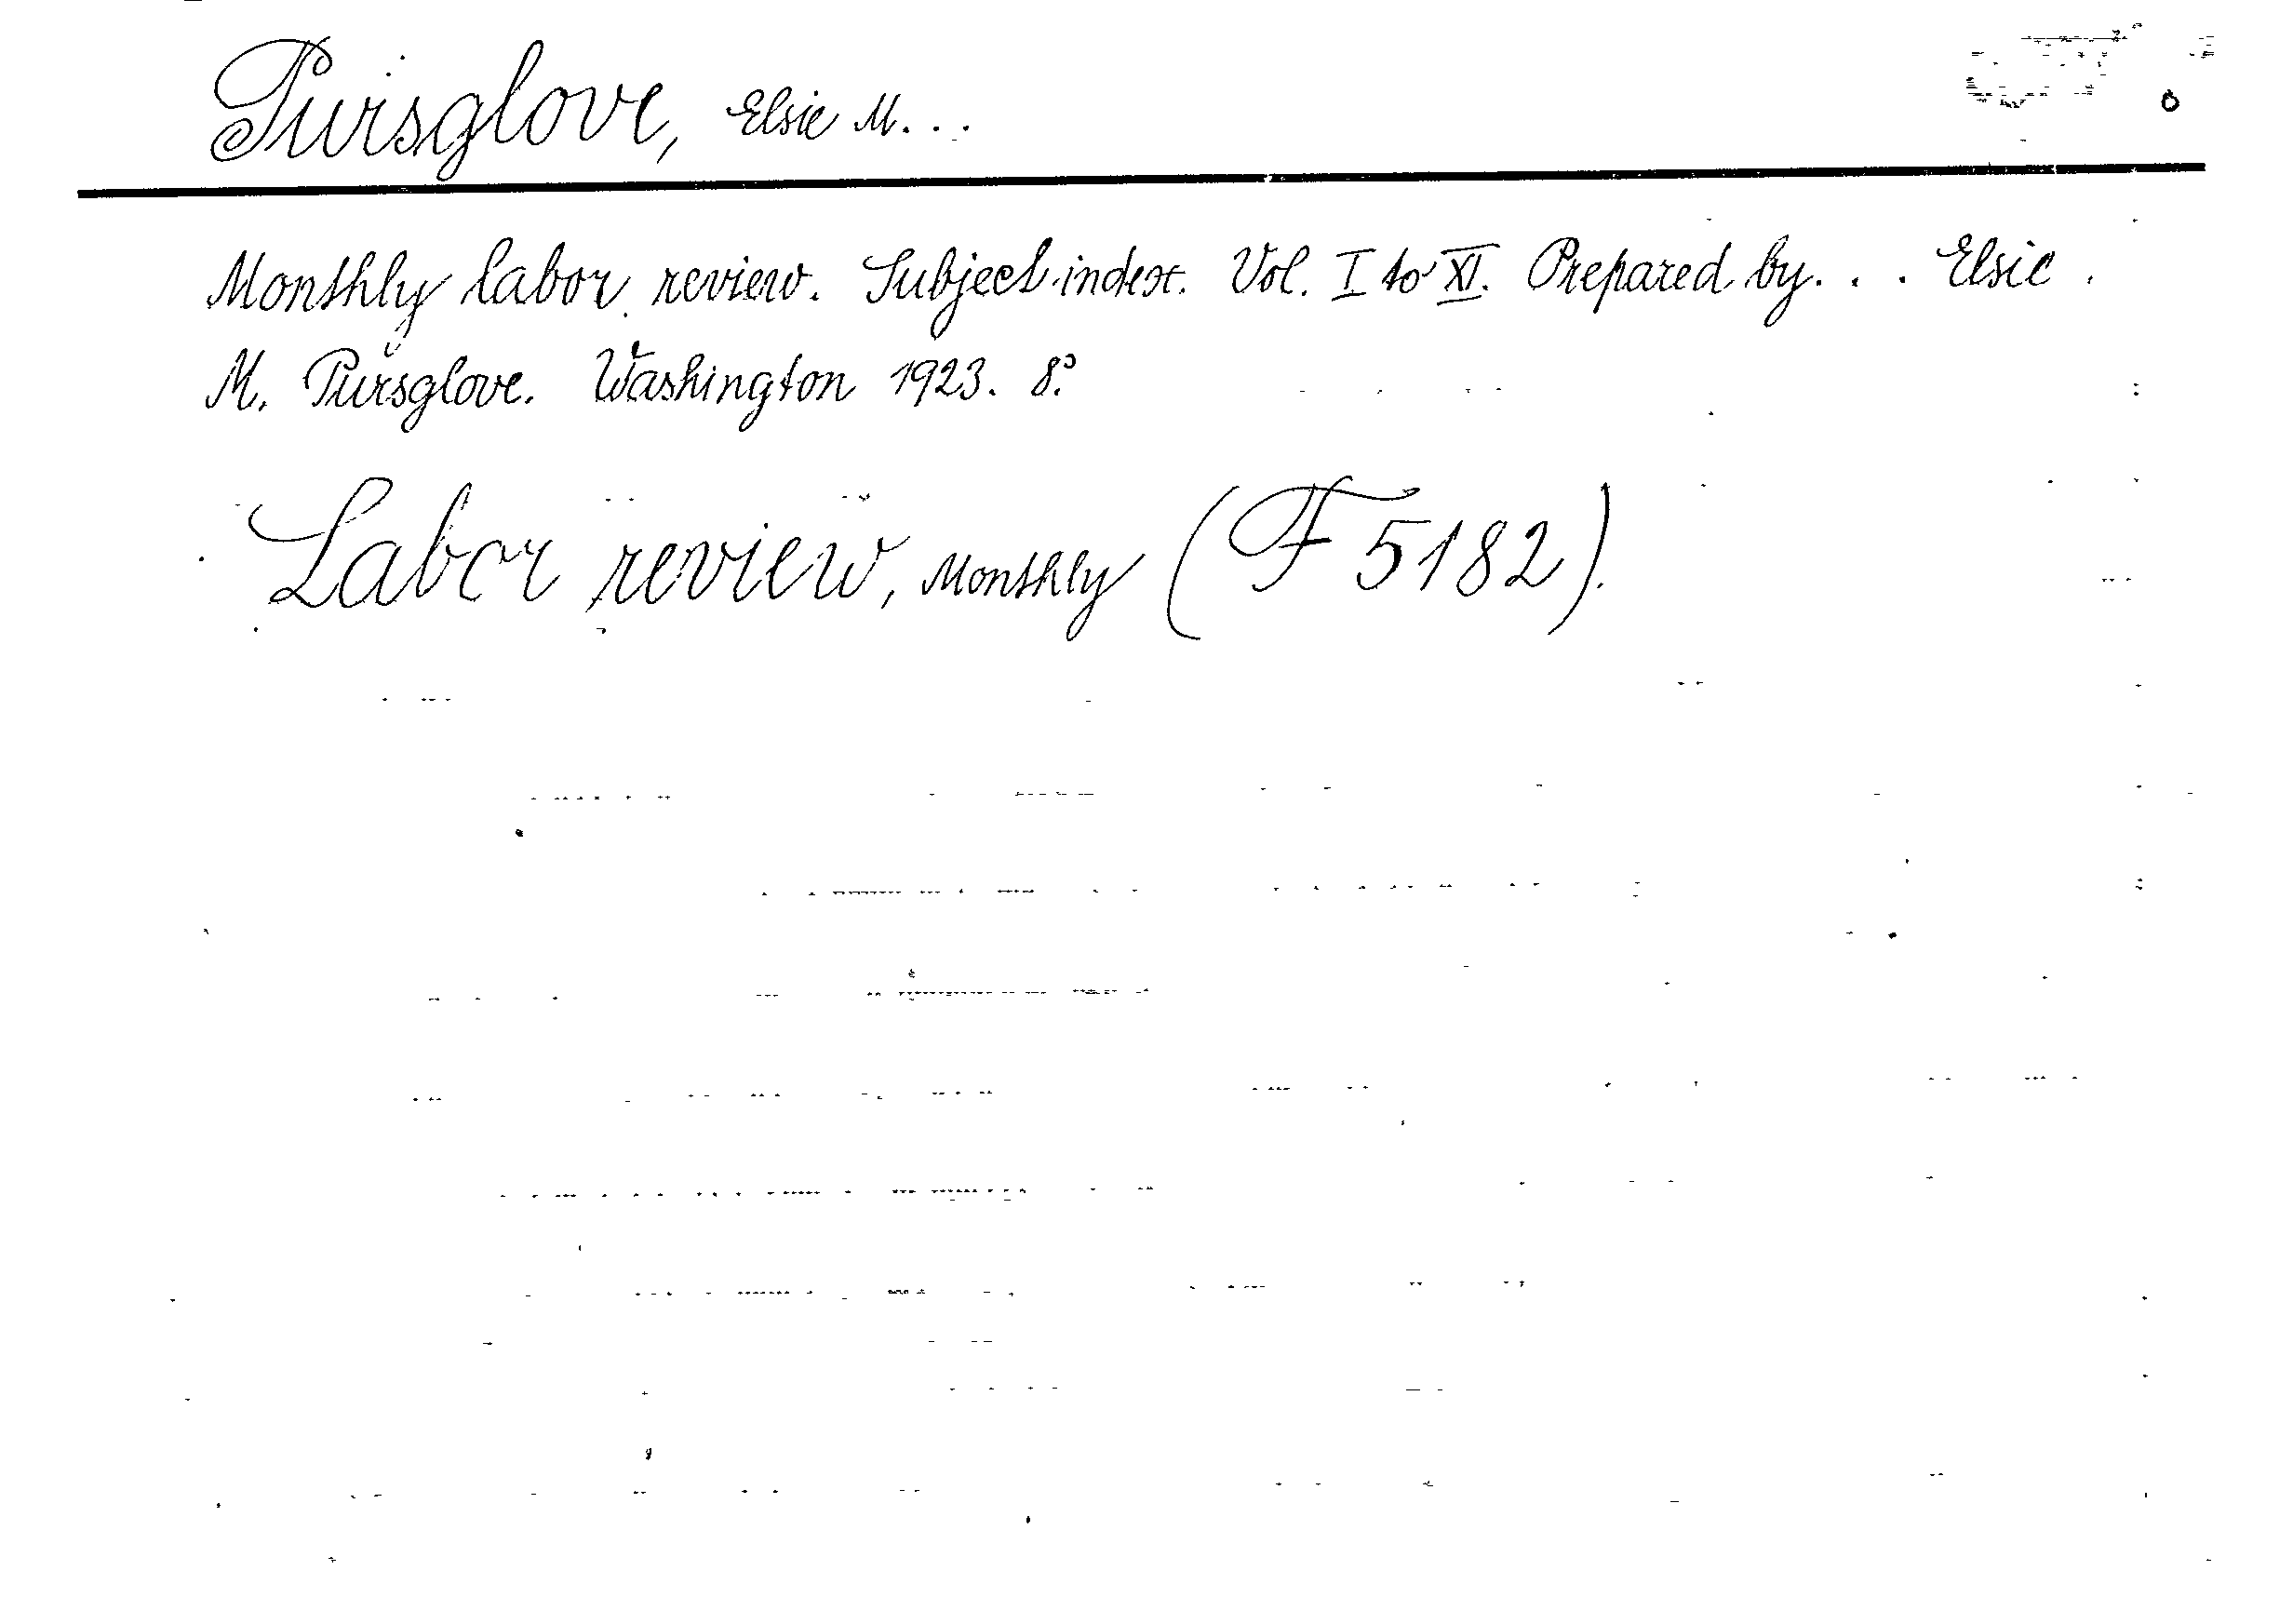 Pursglove, Elsie M...
Monthly labor review. Subject index. Vol. I to XI. Prepared by... Elsie
M. Pursglove. Washington 1923. 8°.
Labor review, Monthly (F 5182).